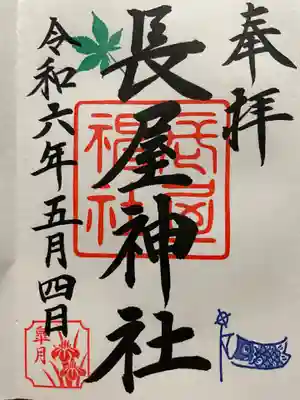 奉拝
長屋神社
長屋神社
令和六年五月四日
皐月